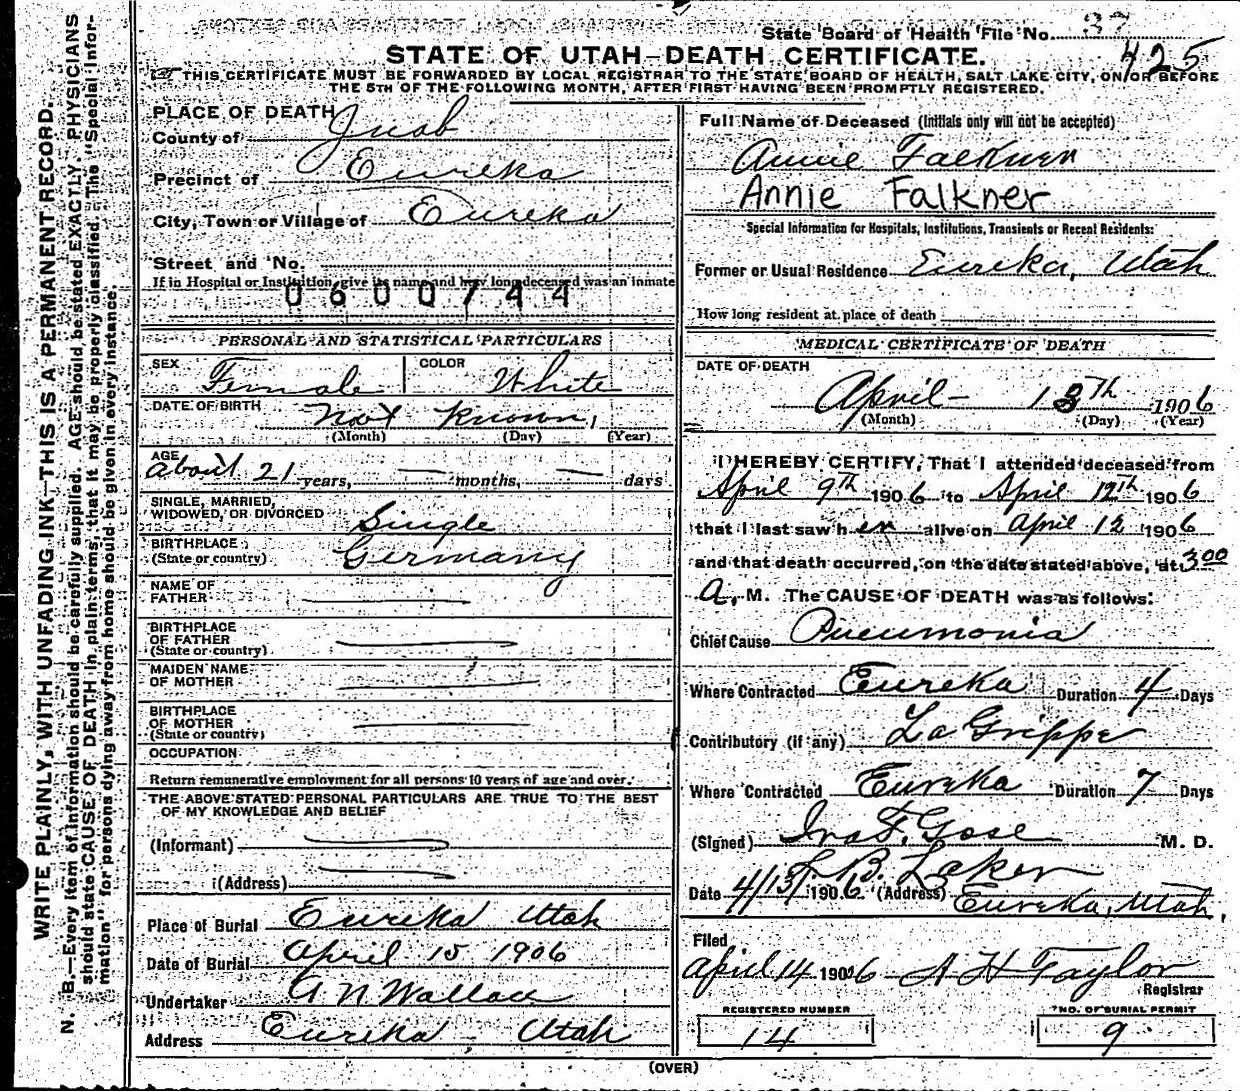 State Board of Health File No. 37
425
STATE OF UTAH—DEATH CERTIFICATE.
THIS CERTIFICATE MUST BE FORWARDED BY LOCAL REGISTRAR TO THE STATE BOARD OF HEALTH, SALT LAKE CITY, ON OR BEFORE
THE 5TH OF THE FOLLOWING MONTH, AFTER FIRST HAVING BEEN PROMPTLY REGISTERED.
WRITE PLAINLY, WITH UNFADING INK—THIS IS A PERMANENT RECORD.
N. B.—Every item of information should be carefully supplied. AGE should be stated EXACTLY. PHYSICIANS
should state CAUSE OF DEATH in plain terms, that it may be properly classified. The "Special Infor-
mation" for persons dying away from home should be given in every instance.
PLACE OF DEATH
County of Juab
Precinct of Eureka
City, Town or Village of Eureka
Street and No.
If in Hospital or Institution, give its name and how long deceased was an inmate
0600744
PERSONAL AND STATISTICAL PARTICULARS
SEX Female COLOR White
DATE OF BIRTH Not Known,
(Month) (Day) (Year)
AGE
about 21 years, — months, — days
SINGLE, MARRIED,
WIDOWED, OR DIVORCED Single
BIRTHPLACE
(State or country) Germany
NAME OF
FATHER
BIRTHPLACE
OF FATHER
(State or country)
MAIDEN NAME
OF MOTHER
BIRTHPLACE
OF MOTHER
(State or country)
OCCUPATION
Return remunerative employment for all persons 10 years of age and over.
THE ABOVE STATED PERSONAL PARTICULARS ARE TRUE TO THE BEST
OF MY KNOWLEDGE AND BELIEF
(Informant)
(Address)
Place of Burial Eureka Utah
Date of Burial April 15 1906
Undertaker A N Wallace
Address Eureka - Utah
Full Name of Deceased (Initials only will not be accepted)
Annie Falkner
Annie Falkner
Special Information for Hospitals, Institutions, Transients or Recent Residents:
Former or Usual Residence Eureka, Utah
How long resident at place of death
MEDICAL CERTIFICATE OF DEATH
DATE OF DEATH
April - 13th 1906
(Month) (Day) (Year)
I HEREBY CERTIFY, That I attended deceased from
April 9th 1906 to April 12th 1906
that I last saw her alive on April 12 1906
and that death occurred, on the date stated above, at 3.00
A. M. The CAUSE OF DEATH was as follows:
Chief Cause Pneumonia
Where Contracted Eureka Duration 4 Days
Contributory (if any) La Grippe
Where Contracted Eureka Duration 7 Days
(Signed) Ira F. Gose M. D.
B. Laker
Date 4/13/ 1906 (Address) Eureka, Utah,
Filed
April 14 1906 A H Taylor
Registrar
REGISTERED NUMBER
14
NO. OF BURIAL PERMIT
9
(OVER)